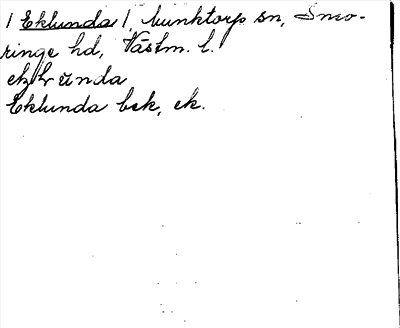 / Eklunda / Munktorps sn, Snevringe hd, Västm. l.
Eklunda bsk, ek.